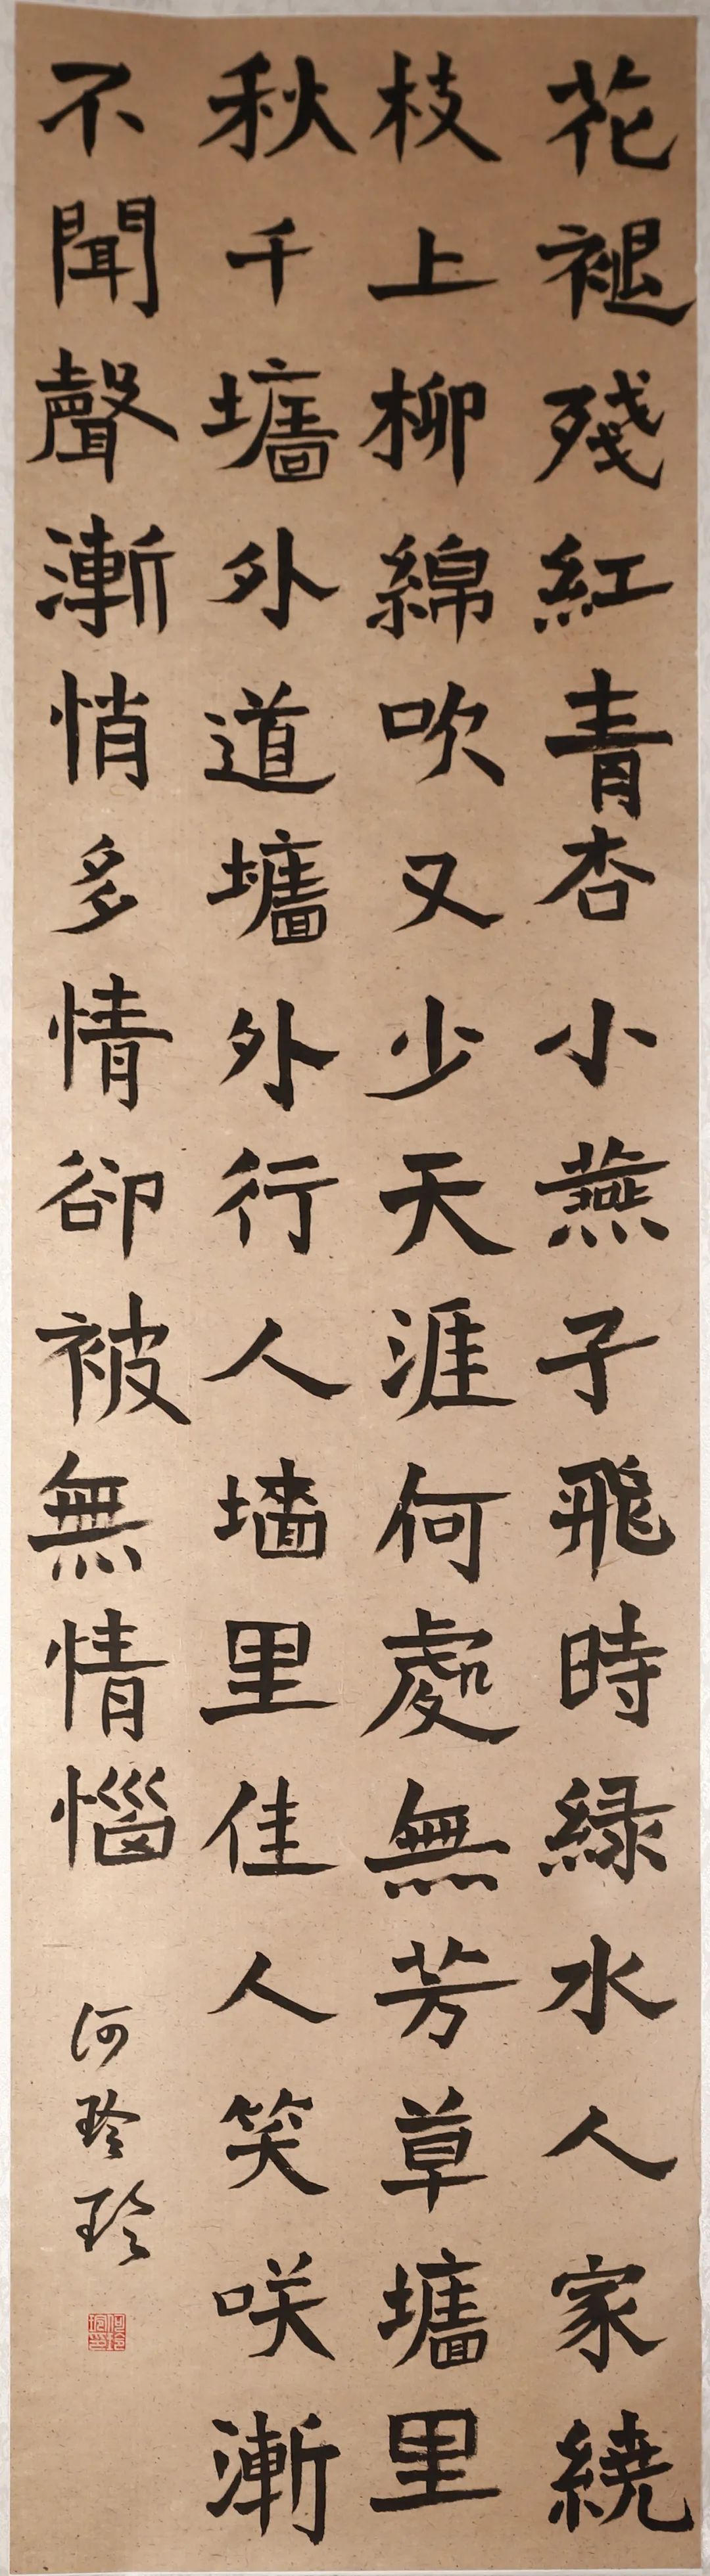 花褪殘紅青杏小燕子飛時緑水人家繞
枝上柳綿吹又少天涯何處無芳草墻里
秋千墻外道墻外行人墻里佳人笑咲漸
不聞聲漸悄多情卻被無情惱
何玲玲